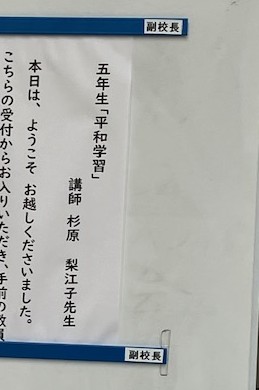 副校長
五年生「平和学習」
講師 杉原 梨江子先生
本日は、ようこそ お越しくださいました。
こちらの受付からお入りいただき、手前の教員
副校長